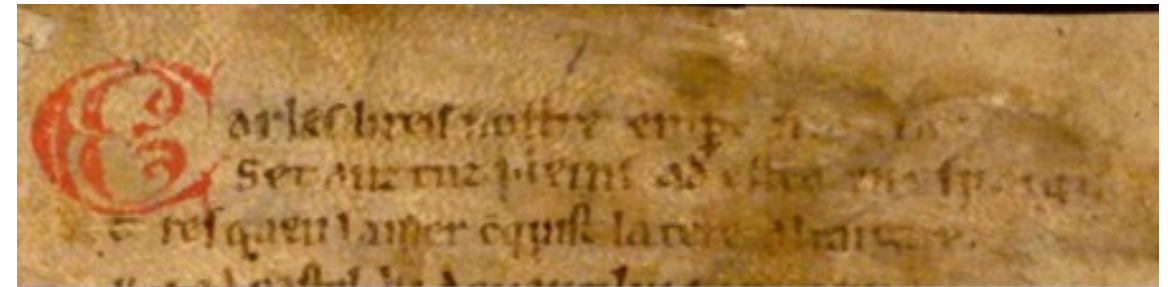 Carles li reis nostre emꝑe magnes
Set anz tuz pleins ad estet en espaigne
Tresquen la mer cūquist la tere altaigne.